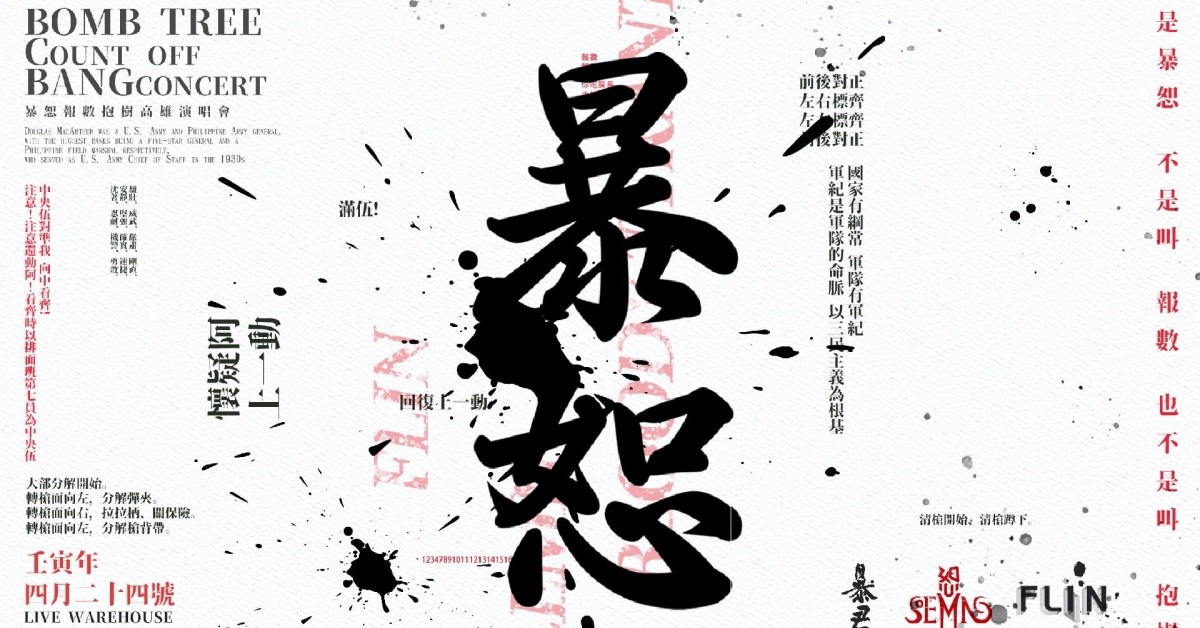 BOMB TREE
COUNT OFF
BANGCONCERT
暴恕報數抱樹高雄演唱會
DOUGLAS MACARTHUR WAS A U.S. ARMY AND PHILIPPINE ARMY GENERAL,
WITH THE HIGHEST RANKS BEING A FIVE-STAR GENERAL AND A
PHILIPPINE FIELD MARSHAL RESPECTIVELY,
WHO SERVED AS U.S. ARMY CHIEF OF STAFF IN THE 1930S
中央伍對準我 向中看齊!
注意!注意還動阿!看齊時以排面 第七員為中央伍
雄壯、威武、嚴肅、剛直、
安靜、堅強、確實、速捷、
沈著、忍耐、機警、勇敢。
懷疑阿
上一動
大部分解開始。
轉槍面向左, 分解彈夾。
轉槍面向右, 拉拉柄、關保險。
轉槍面向左, 分解槍背帶。
壬寅年
四月二十四號
LIVE WAREHOUSE
滿伍!
回復上一動
FLIN
報數
暴恕
前後對正
左右標齊
左 標齊
後對正
國家有綱常 軍隊有軍紀
軍紀是軍隊的命脈 以三民主義為根基
清槍開始、清槍蹲下。
暴君
SEMNS
FLIN
是暴恕 不是叫 報數 也不是叫 抱